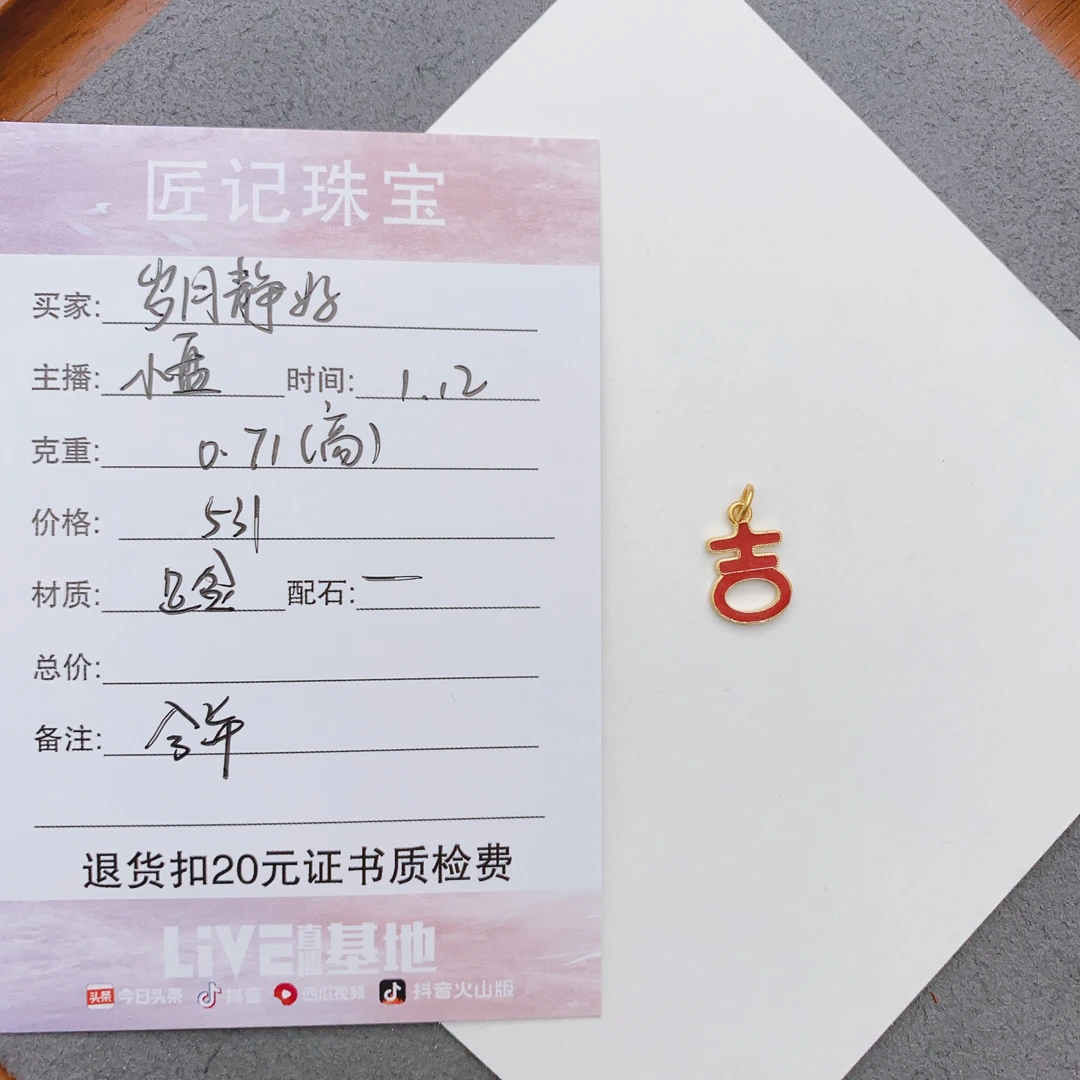 匠记珠宝
买家: 岁月静好
主播: 小聂 时间: 1.12
克重: 0.71(高)
价格: 531
材质: 足金 配石: 一
总价:
备注: 今年
退货扣20元证书质检费
LiVE直播基地
头条 今日头条 抖音 西瓜视频 抖音火山版
吉